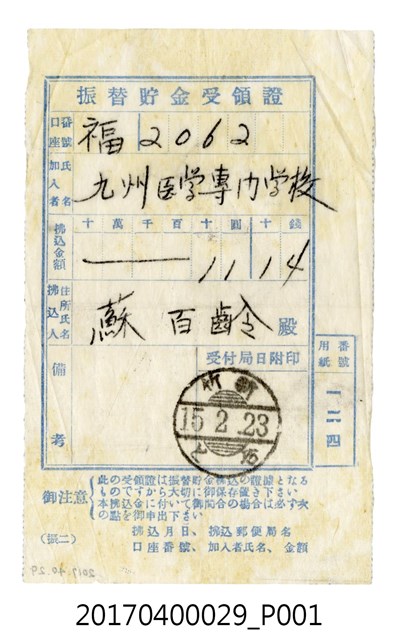 振替貯金受領證
口座番號 福2062
加入者氏名 九州医学專门学校
拂込金額 十萬千百十圓十錢
一 11 14
拂込人住所氏名 蘇百齡殿
備考
受付局日附印
用紙番號 一二四
新竹
15.2.23
御注意
此の受領證は振替貯金拂込の證據となる
ものですから大切に御保存置き下さい
本拂込金に付いて御問合の場合は必ず次
の點を御申出下さい
拂込月日、拂込郵便局名
口座番號、加入者氏名、金額
(振二)
20170400029_P001